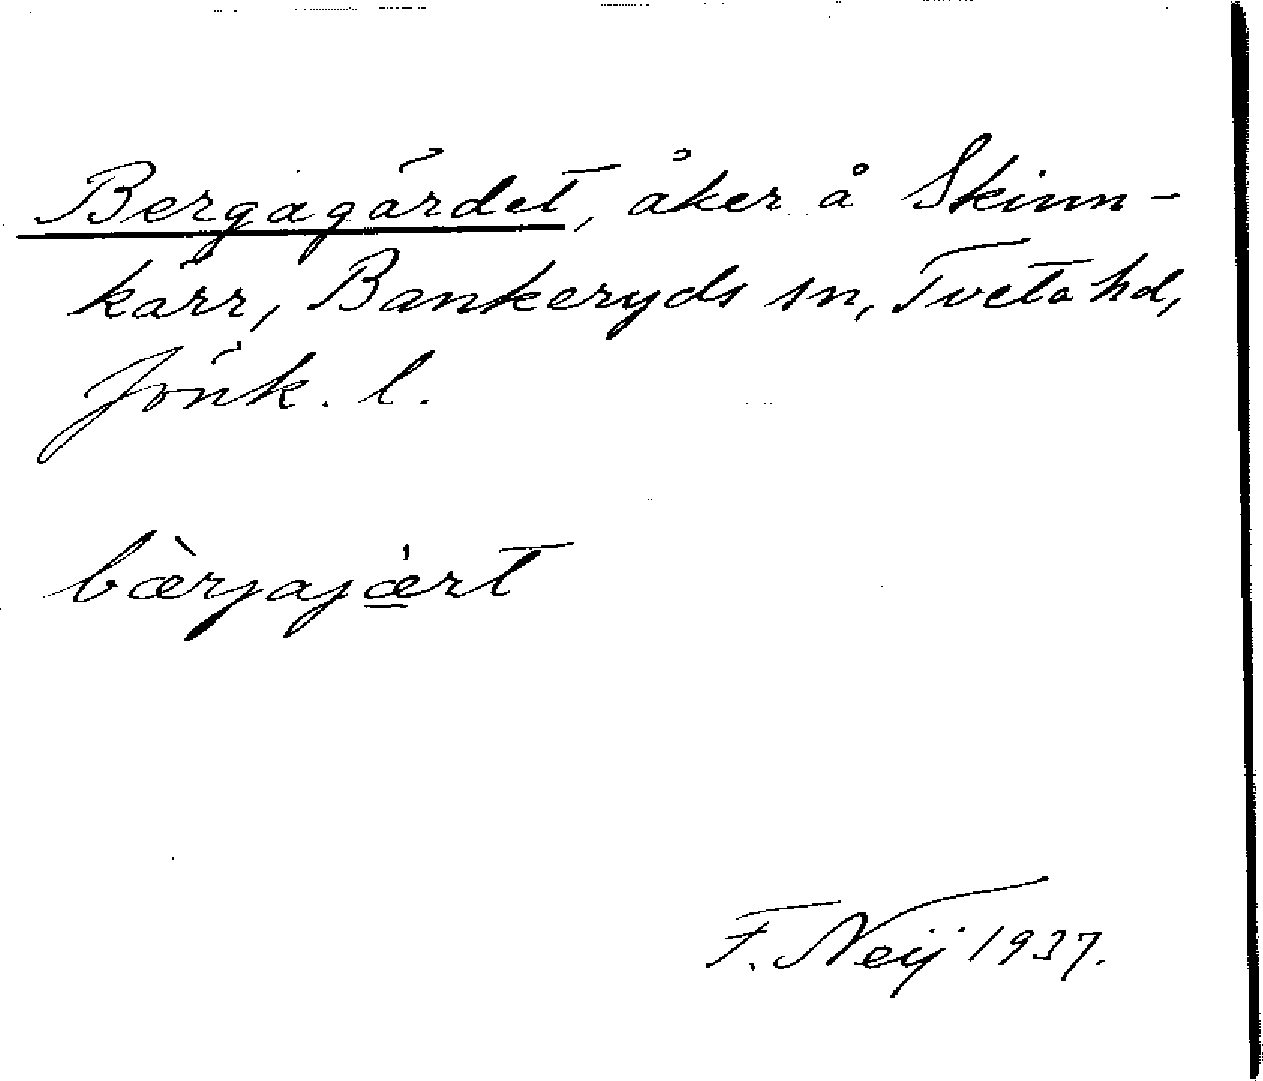 Bergagärdet, åker å Skinn-
kärr, Bankeryds sn, Tveta hd,
Jönk. l.
bæ̀rjajæ̠̍rt
F. Neij 1937.